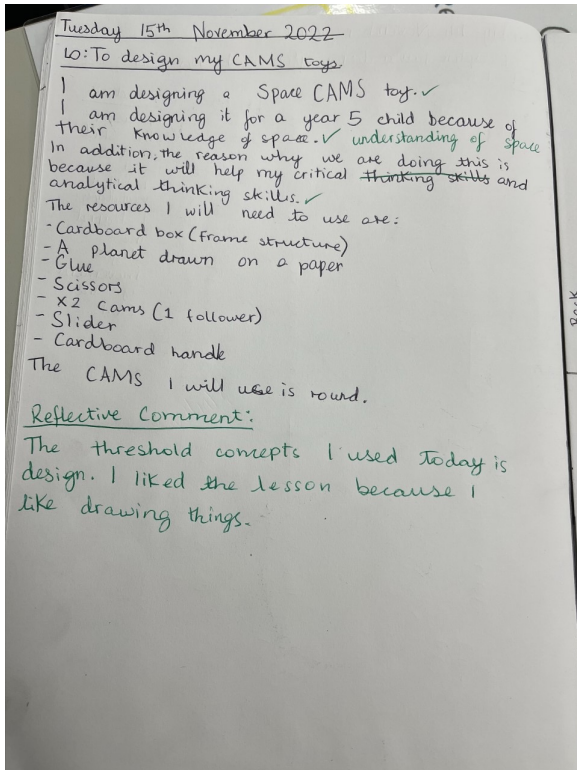 Tuesday 15th November 2022
LO: To design my CAMS toys.
I am designing a Space CAMS toy. ✓
I am designing it for a year 5 child because of
their knowledge of space. ✓ understanding of space
In addition, the reason why we are doing this is
because it will help my critical ~~thinking skills~~ and
analytical thinking skills. ✓
The resources I will need to use are:
- Cardboard box (frame structure)
- A planet drawn on a paper
- Glue
- Scissors
- x2 Cams (1 follower)
- Slider
- Cardboard handle
The CAMS I will use is round.
Reflective Comment:
The threshold concepts I used today is
design. I liked the lesson because I
like drawing things.